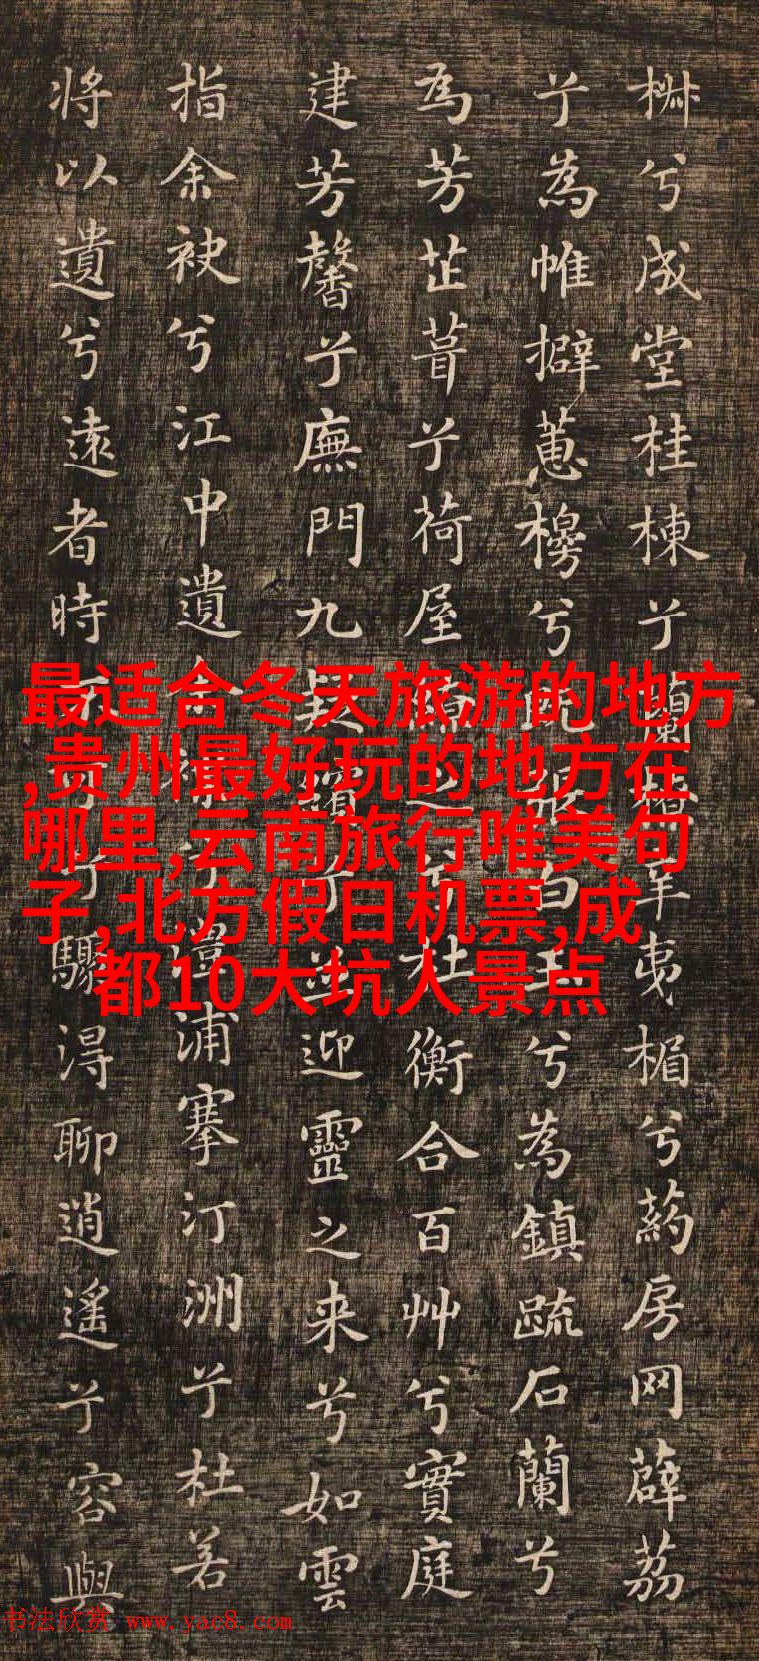 兮成堂桂棟兮蘭夷楣兮葯房网薜荔
兮為帷擗蕙櫋兮既張白玉兮為鎮疏石蘭兮
為芳芷葺兮荷屋之兮杜衡合百艸兮實庭
建芳馨兮廡門九疑繽兮並迎靈之来兮如雲
指余袂兮江中遺余褋兮澧浦搴汀洲兮杜若
將以遺兮遠者時不可兮驟得聊逍遙兮容與
最适合冬天旅游的地方
,贵州最好玩的地方在
哪里,云南旅行唯美句
子,北方假日机票,成
都10大坑人景点
书法欣赏 www.yac8.com